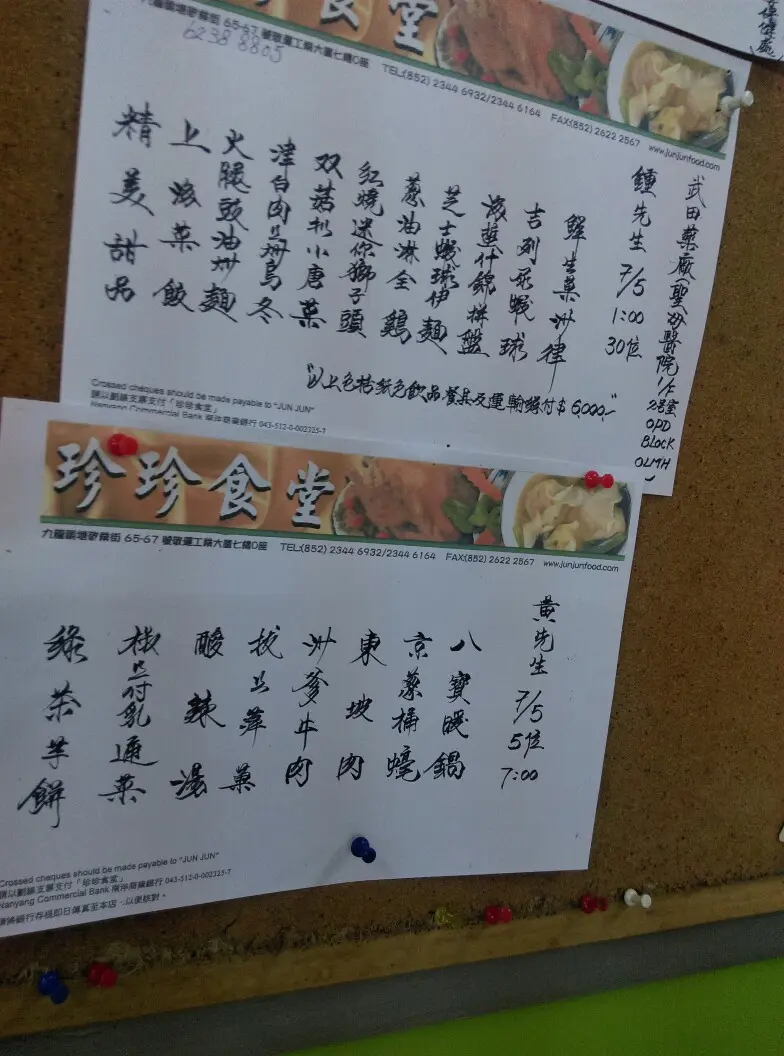 食堂
65-67 號敬運工業大廈七樓D座 TEL:(852) 2344 6932/2344 6164 FAX:(852) 2622 2567 www.junjunfood.com
6238 8805
武田藥廠(聖母醫院1/F 2号室 OPD BLOCK OLMH)
鍾先生 7/5 1:00 30位
鮮生菓沙律
吉列死蝦球
海蜇什錦拼盤
芝士蝦球伊麵
蔥油淋全鷄
紅燒迷你獅子頭
双菇扒小唐菜
津白肉丝炒烏冬
火腿豉油炒麵
上海菜飯
精美甜品
以上包括紙包飲品餐具及運輸錢付$6,000.-
Crossed cheques should be made payable to "JUN JUN"
請以劃線支票支付「珍珍食堂」
Nanyang Commercial Bank 南洋商業銀行 043-512-0-002325-7
珍珍食堂
九龍觀塘敬業街 65-67 號敬運工業大廈七樓D座 TEL:(852) 2344 6932/2344 6164 FAX:(852) 2622 2567 www.junjunfood.com
黄先生 7/5 5位 7:00
八寶暖鍋
京蒸桶蠔
東坡肉
沙爹牛肉
酸辣湯
椒丝付乳通菜
綠茶芋餅
Crossed cheques should be made payable to "JUN JUN"
請以劃線支票支付「珍珍食堂」
Nanyang Commercial Bank 南洋商業銀行 043-512-0-002325-7
請將銀行存紙即日傳真至本店，以便核對。